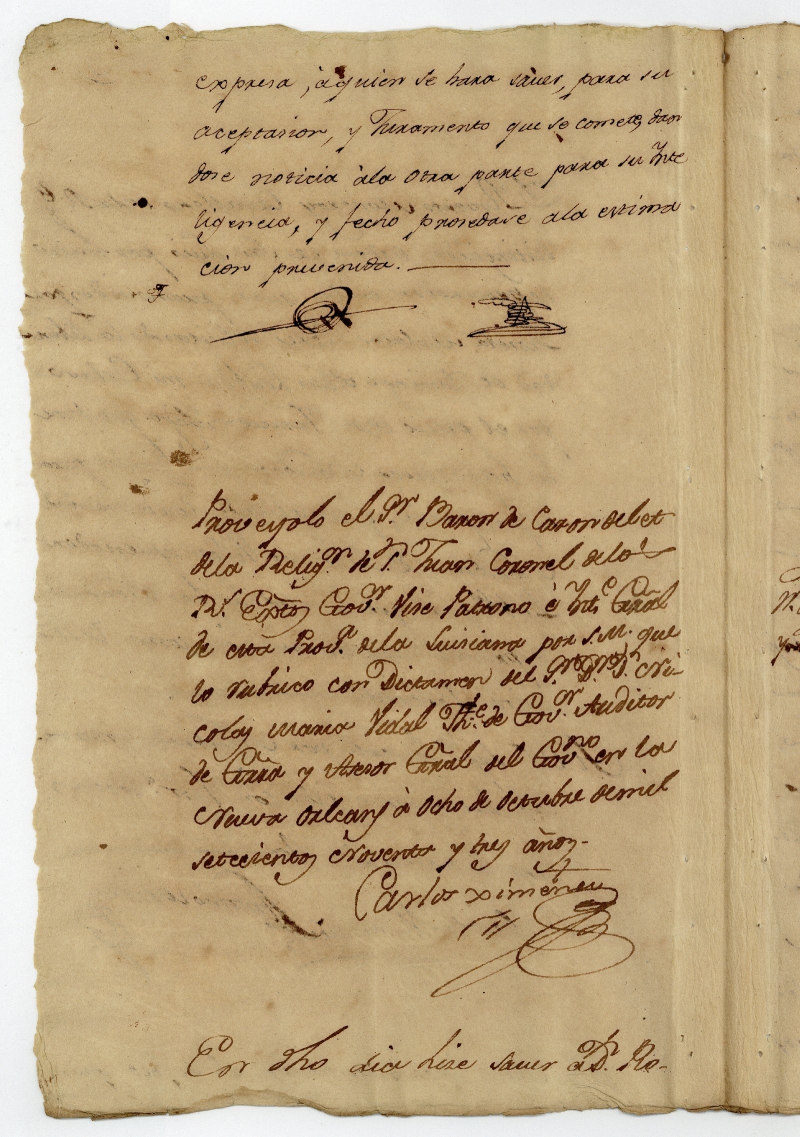 expresa, à quien se hara saver, para su
aceptasion, y Juramento que se comete, dan
dose noticia à la otra parte para su Inte
ligencia, y fecho prosedase a la estima
cion prevenida.
Proveyolo el S.or Baron de Carondelet
dela Relig.on de S.n Juan Coronel delos
R.s Exptos Gov.or Vise Patrono è Int.e Gñral
de esta Prov.a dela Luisiana por S.M. que
lo rubrico con Dictamen del S.or D.n Ni-
colas Maria Vidal Th.e de Gov.or Auditor
de Grra y Asesor Gñral del Gov.no en la
Nueva Orleans à ocho de octubre demil
setecientos Noventa y tres años.
Carlos Ximenes
En dho dia hise saver à D.n Ro-